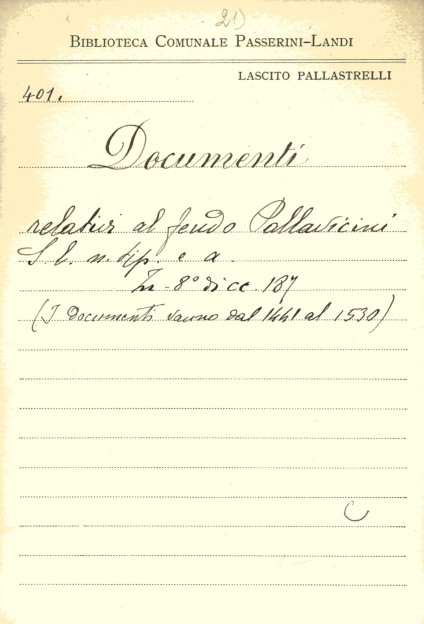 21)
BIBLIOTECA COMUNALE PASSERINI-LANDI
LASCITO PALLASTRELLI
401.
Documenti
relativi al feudo Pallavicini
S. l. n. tip. e a.
In - 8° di cc. 187
(I Documenti vanno dal 1441 al 1530)
C